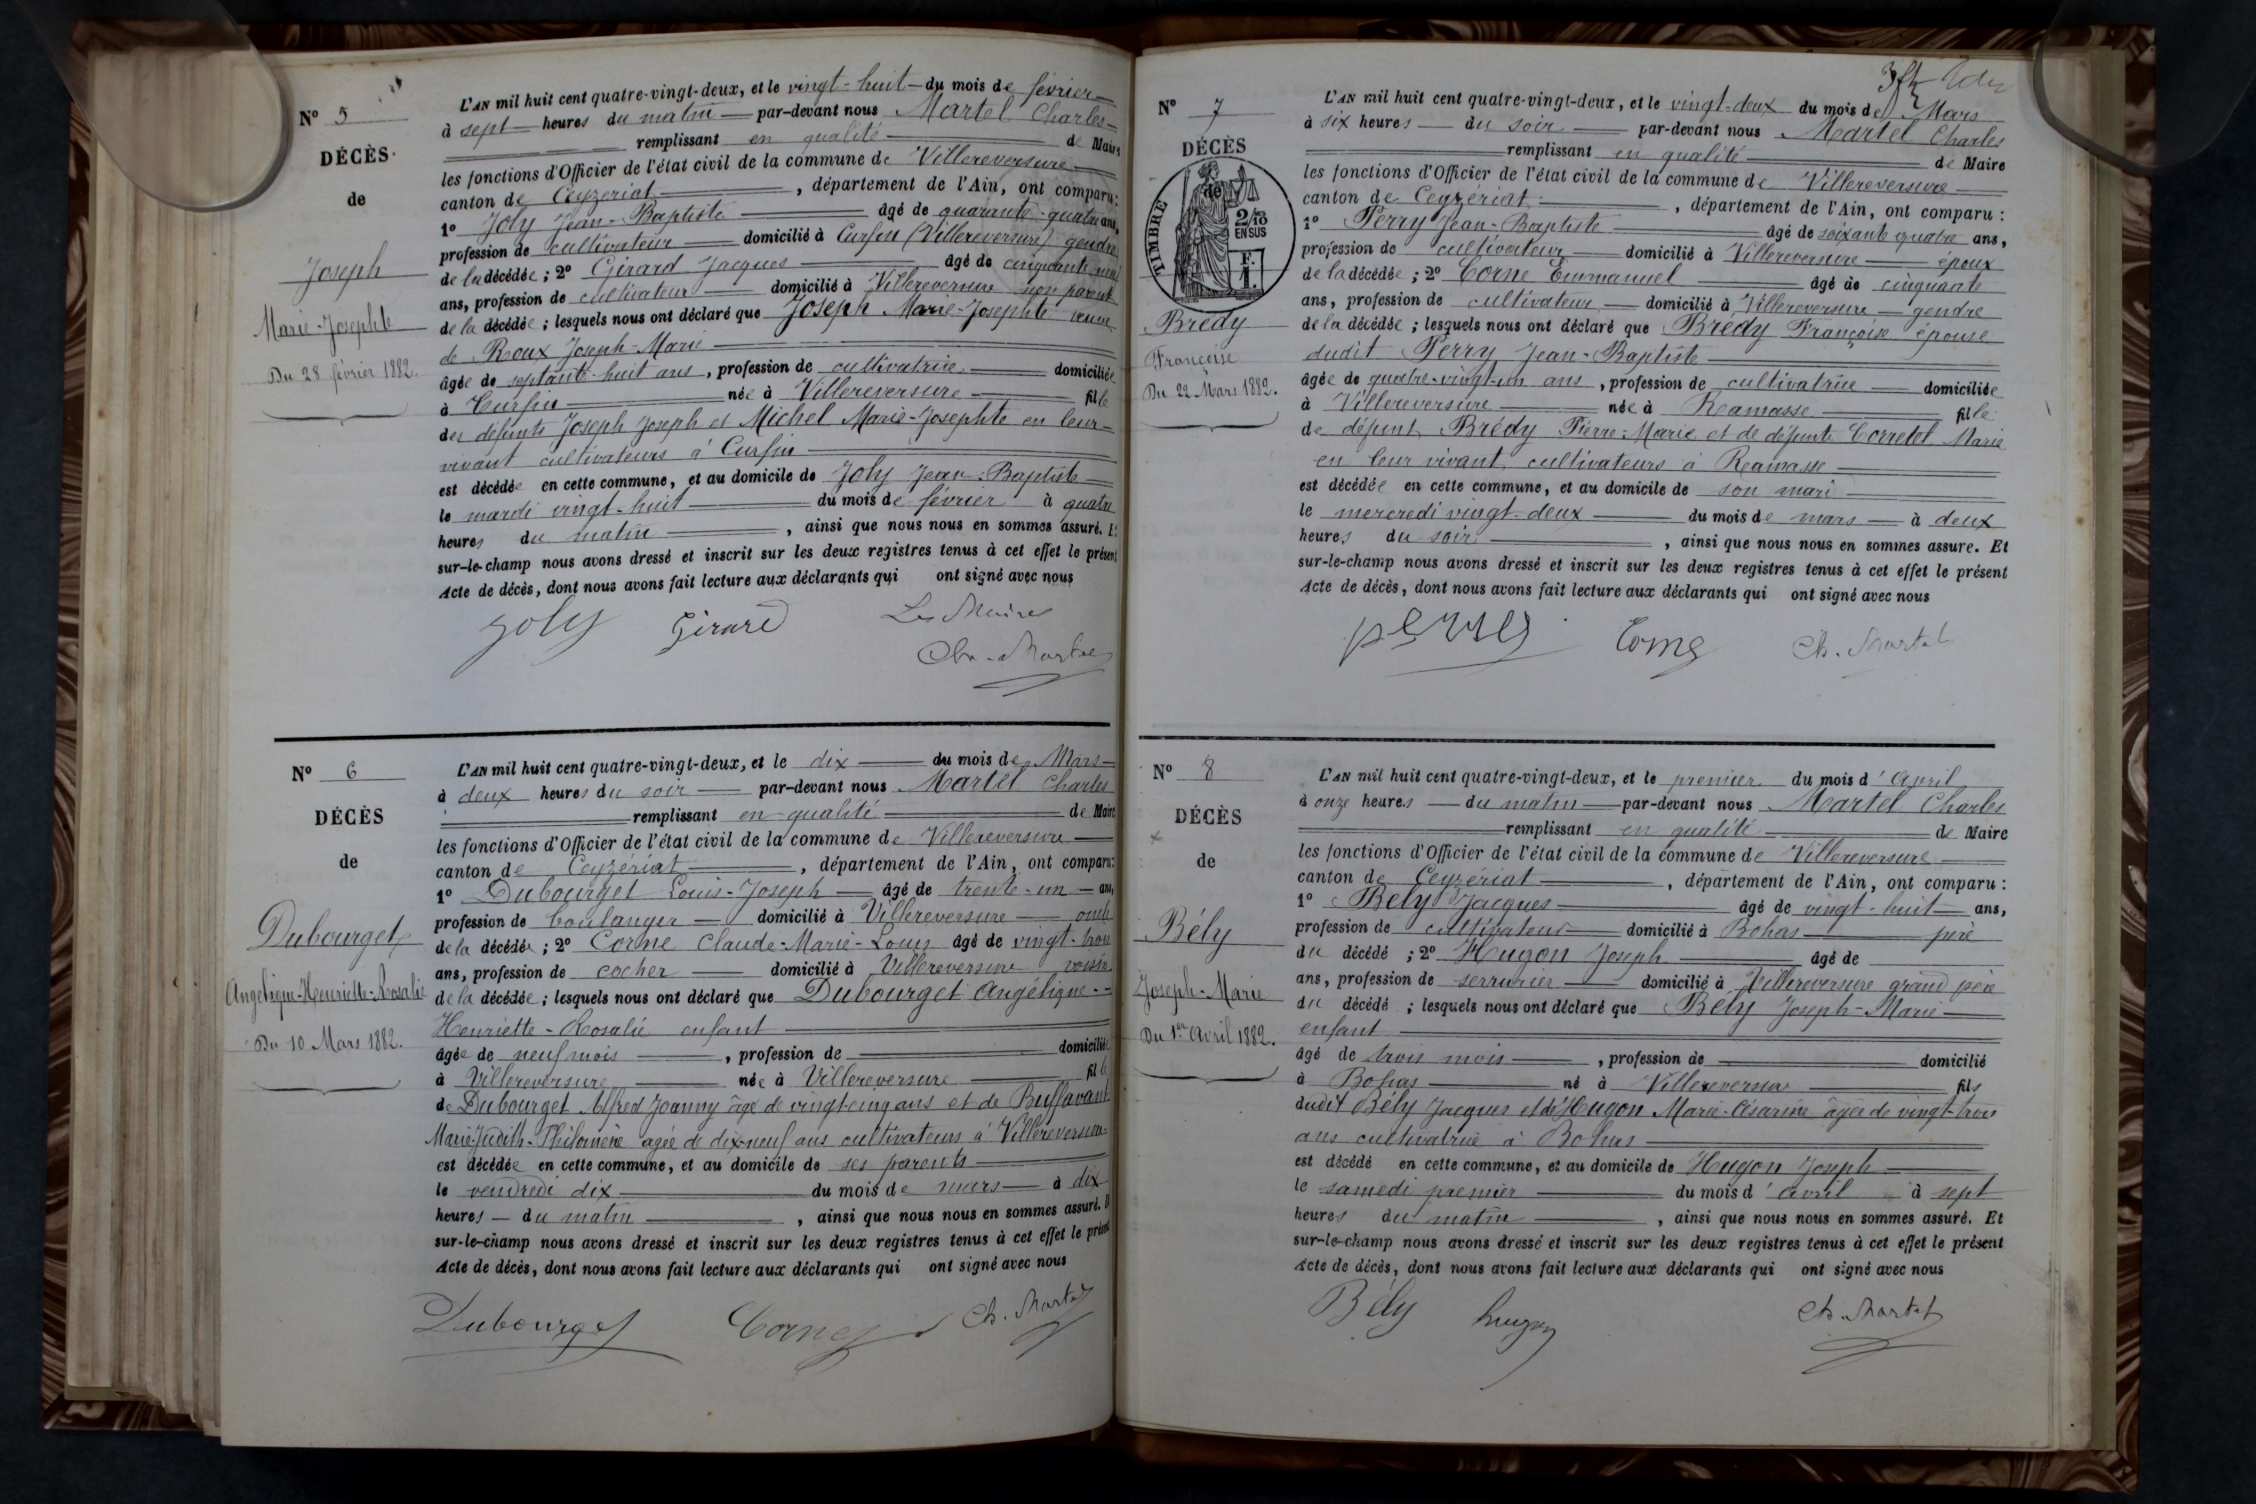 N° 5
DÉCÈS
de
Joseph
Marie-Josephte
Du 28 février 1882.
L'AN mil huit cent quatre-vingt-deux, et le vingt-huit du mois de février
à sept heures du matin par-devant nous Martel Charles
remplissant en qualité de Maire
les fonctions d'Officier de l'état civil de la commune de Villereversure
canton de Ceyzeriat, département de l'Ain, ont comparu:
1° Joly Jean-Baptiste âgé de quarante-quatre ans,
profession de cultivateur domicilié à Curfin (Villereversure) gendre
de la décédée; 2° Girard Jacques âgé de cinquante
ans, profession de cultivateur domicilié à Villereversure non parent
de la décédée; lesquels nous ont déclaré que Joseph Marie-Josephte veuve
de Roux Joseph-Marie
âgée de septante-huit ans, profession de cultivatrice domiciliée
à Curfin née à Villereversure fille
des défunts Joseph Joseph et Michel Marie-Josephte en leur
vivant cultivateurs à Curfin
est décédée en cette commune, et au domicile de Joly Jean-Baptiste
le mardi vingt-huit du mois de février à quatre
heures du matin, ainsi que nous nous en sommes assuré. Et
sur-le-champ nous avons dressé et inscrit sur les deux registres tenus à cet effet le présent
Acte de décès, dont nous avons fait lecture aux déclarants qui ont signé avec nous
Joly Girard Le Maire
Ch. Martel
N° 6
DÉCÈS
de
Dubourget
Angélique-Henriette-Rosalie
Du 10 Mars 1882.
L'AN mil huit cent quatre-vingt-deux, et le dix du mois de Mars
à deux heures du soir par-devant nous Martel Charles
remplissant en qualité de Maire
les fonctions d'Officier de l'état civil de la commune de Villereversure
canton de Ceyzériat, département de l'Ain, ont comparu:
1° Dubourget Louis-Joseph âgé de trente-un ans,
profession de boulanger domicilié à Villereversure oncle
de la décédée; 2° Corne Claude-Marie-Louis âgé de vingt-trois
ans, profession de cocher domicilié à Villereversure voisin
de la décédée; lesquels nous ont déclaré que Dubourget Angélique-
Henriette-Rosalie enfant
âgée de neuf mois, profession de domiciliée
à Villereversure née à Villereversure fille
de Dubourget Alfred Joanny âgé de vingt-cinq ans et de Buffavant
Marie-Judith-Philomène agée de dix-neuf ans cultivateurs à Villereversure
est décédée en cette commune, et au domicile de ses parents
le vendredi dix du mois de mars à dix
heures du matin, ainsi que nous nous en sommes assuré. Et
sur-le-champ nous avons dressé et inscrit sur les deux registres tenus à cet effet le présent
Acte de décès, dont nous avons fait lecture aux déclarants qui ont signé avec nous
Dubourget Corne Ch. Martel
N° 7
DÉCÈS
de
TIMBRE
2/10
EN SUS
F.
1.
Brédy
Françoise
Du 22 Mars 1882.
L'AN mil huit cent quatre-vingt-deux, et le vingt-deux du mois de Mars
à six heures du soir par-devant nous Martel Charles
remplissant en qualité de Maire
les fonctions d'Officier de l'état civil de la commune de Villereversure
canton de Ceyzériat, département de l'Ain, ont comparu:
1° Perry Jean-Baptiste âgé de soixante quatre ans,
profession de cultivateur domicilié à Villereversure époux
de la décédée; 2° Corne Emmanuel âgé de cinquante
ans, profession de cultivateur domicilié à Villereversure gendre
de la décédée; lesquels nous ont déclaré que Brédy Françoise épouse
dudit Perry Jean-Baptiste
âgée de quatre-vingt-un ans, profession de cultivatrice domiciliée
à Villereversure née à Ramasse fille
de défunt Brédy Pierre-Marie et de défunte Corretel Marie
en leur vivant cultivateurs à Ramasse
est décédée en cette commune, et au domicile de son mari
le mercredi vingt-deux du mois de mars à deux
heures du soir, ainsi que nous nous en sommes assuré. Et
sur-le-champ nous avons dressé et inscrit sur les deux registres tenus à cet effet le présent
Acte de décès, dont nous avons fait lecture aux déclarants qui ont signé avec nous
Perry Corne Ch. Martel
N° 8
DÉCÈS
de
Bély
Joseph-Marie
Du 1er Avril 1882.
L'AN mil huit cent quatre-vingt-deux, et le premier du mois d'April
à onze heures du matin par-devant nous Martel Charles
remplissant en qualité de Maire
les fonctions d'Officier de l'état civil de la commune de Villereversure
canton de Ceyzériat, département de l'Ain, ont comparu:
1° Bély Jacques âgé de vingt-huit ans,
profession de cultivateur domicilié à Bohas père
du décédé; 2° Hugon Joseph âgé de
ans, profession de serrurier domicilié à Villereversure grand père
du décédé; lesquels nous ont déclaré que Bély Joseph-Marie
enfant
âgé de trois mois, profession de domicilié
à Bohas né à Villereversure fils
dudit Bély Jacques et de Hugon Marie-Césarine âgée de vingt-trois
ans cultivatrice à Bohas
est décédé en cette commune, et au domicile de Hugon Joseph
le samedi premier du mois d'avril à sept
heures du matin, ainsi que nous nous en sommes assuré. Et
sur-le-champ nous avons dressé et inscrit sur les deux registres tenus à cet effet le présent
Acte de décès, dont nous avons fait lecture aux déclarants qui ont signé avec nous
Bély hugon Ch. Martel